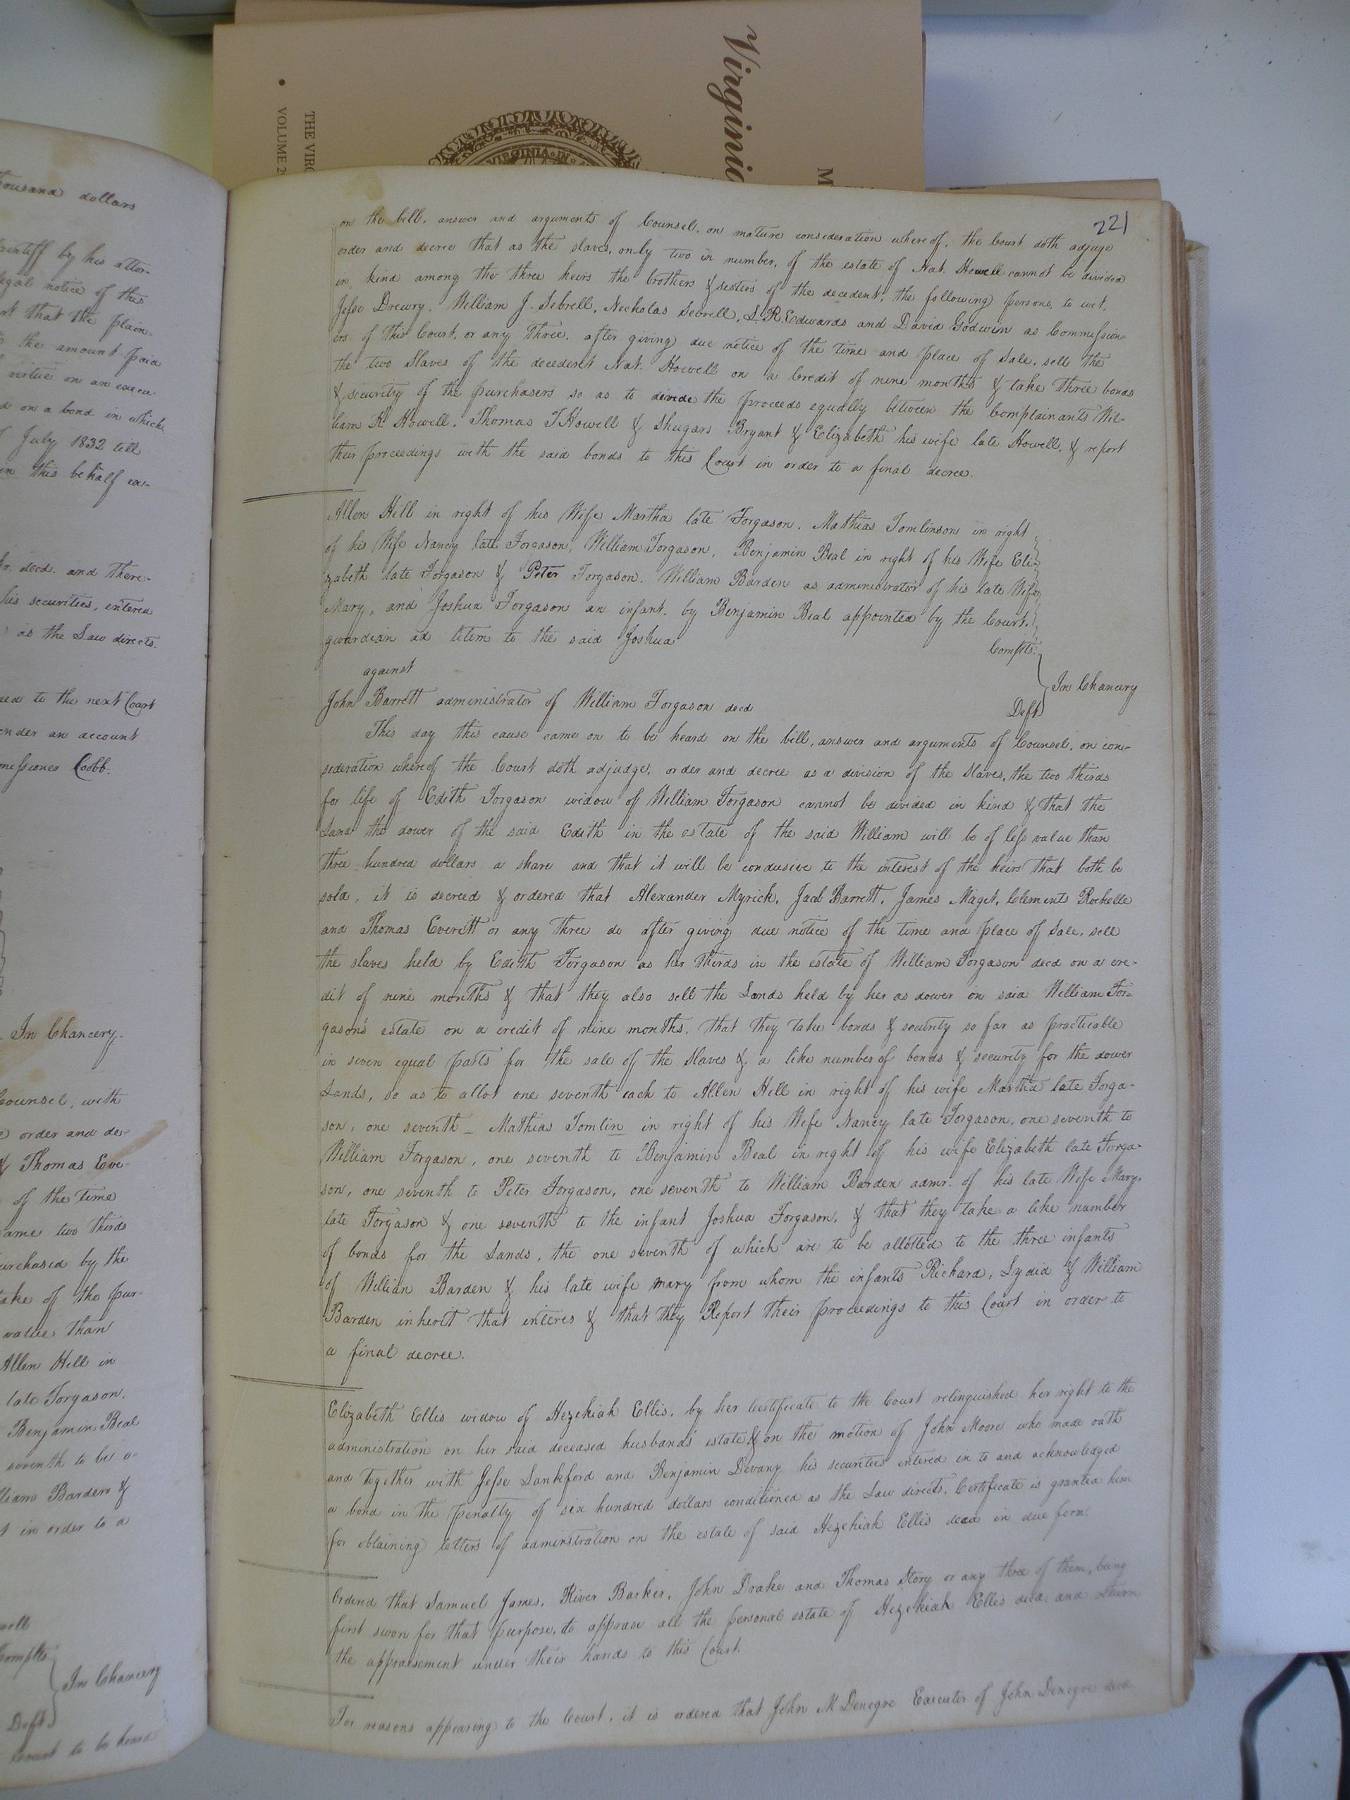 Virginia
THE VIRG
VOLUME 2
M
VIRGINIA IN
221
on the bill, answer and arguments of Counsel, on mature consideration whereof, the Court doth adjuge
order and decree that as the slaves, only two in number, of the estate of Nat. Howell cannot be divided
in kind among the three heirs the brothers & sisters of the decedent, the following persons, to wit,
Jesse Drewry, William J. Sebrell, Nicholas Sebrell, S. R. Edwards and David Godwin as Commission-
ers of this Court, or any three, after giving due notice of the time and place of sale, sell the
the two slaves of the decedent Nat. Howell on a credit of nine months & take three bonds
& security of the purchasers so as to divide the proceeds equally between the Complainants Wil-
liam H. Howell, Thomas T Howell & Shugars Bryant & Elizabeth his wife late Howell, & report
their proceedings with the said bonds to this Court in order to a final decree.
Allen Hill in right of his Wife Martha late Forgason, Mathias Tomlinson in right
of his Wife Nancy late Forgason, William Forgason, Benjamin Beal in right of his Wife Eli-
zabeth late Forgason & Peter Forgason, William Barden as administrator of his late Wife
Mary, and Joshua Forgason an infant, by Benjamin Beal appointed by the Court,
guardian ad litem to the said Joshua Complts.
against
In Chancery
John Barrett administrator of William Forgason decd Deft
This day this cause came on to be heard on the bill, answer and arguments of Counsel, on con-
sideration whereof the Court doth adjudge, order and decree as a division of the slaves, the two thirds
for life of Edith Forgason widow of William Forgason cannot be divided in kind & that the
Land the dower of the said Edith in the estate of the said William will be of less value than
three hundred dollars a share and that it will be condusive to the interest of the heirs that both be
sold, it is decreed & ordered that Alexander Myrick, Jacob Barrett, James Maget, Clements Rochelle
and Thomas Everett or any three do after giving due notice of the time and place of sale, sell
the slaves held by Edith Forgason as her thirds in the estate of William Forgason decd on a cre-
dit of nine months & that they also sell the Lands held by her as dower in said William For-
gason's estate on a credit of nine months, that they take bonds & security so far as practicable
in seven equal parts for the sale of the slaves & a like number of bonds & security for the dower
Lands, so as to allot one seventh each to Allen Hill in right of his wife Martha late Forga-
son, one seventh - Mathias Tomlin in right of his Wife Nancy late Forgason, one seventh to
William Forgason, one seventh to Benjamin Beal in right of his wife Elizabeth late Forga-
son, one seventh to Peter Forgason, one seventh to William Barden admr. of his late Wife Mary,
late Forgason & one seventh to the infant Joshua Forgason, & that they take a like number
of bonds for the Lands, the one seventh of which are to be allotted to the three infants
of William Barden & his late wife Mary from whom the infants Richard, Lydia & William
Barden inherit that interes & that they Report their proceedings to this Court in order to
a final decree.
Elizabeth Ellis widow of Hezekiah Ellis, by her Certificate to the Court relinquished her right to the
administration on her said deceased husbands estate & on the motion of John Moore who made oath
and together with Jesse Lankford and Benjamin Devany his securities entered in to and acknowledged
a bond in the penalty of six hundred dollars conditioned as the Law directs, Certificate is granted him
for obtaining letters of adminstration on the estate of said Hezekiah Ellis decd in due form.
Ordered that Samuel James, River Barker, John Drake and Thomas Story or any three of them, being
first sworn for that purpose, do appraise all the personal estate of Hezekiah Ellis decd. and return
the appraisement under their hands to this Court.
For reasons appearing to the Court, it is ordered that John M Denegre Executor of John Denegre decd